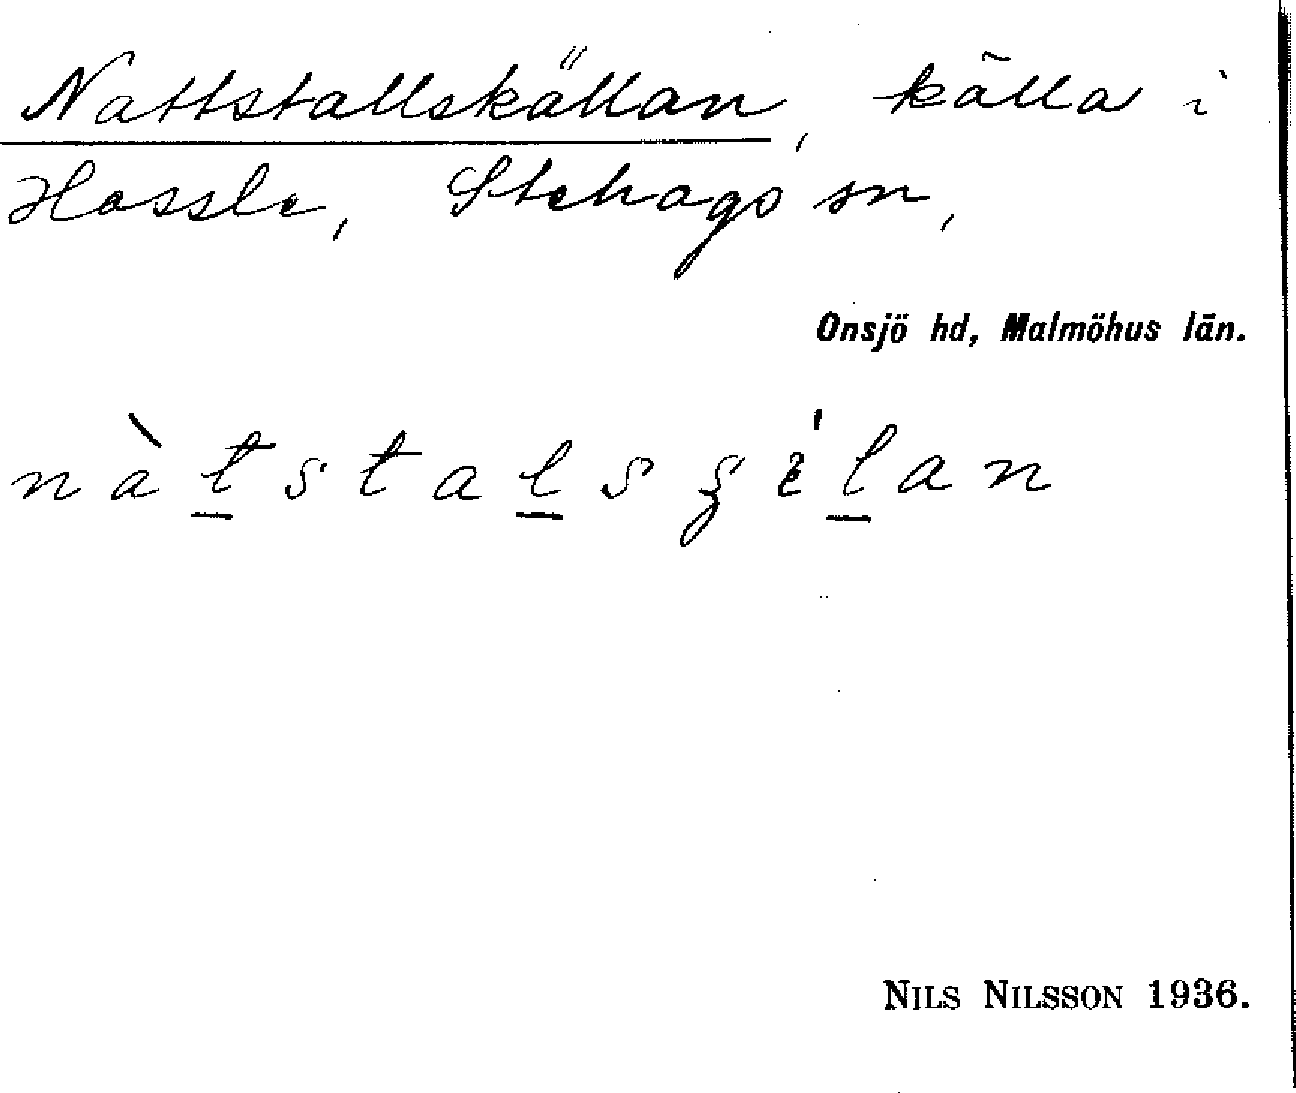 Nattstallskällan, källa i
Hassle, Stehags sn,
Onsjö hd, Malmöhus län.
NILS NILSSON 1936.